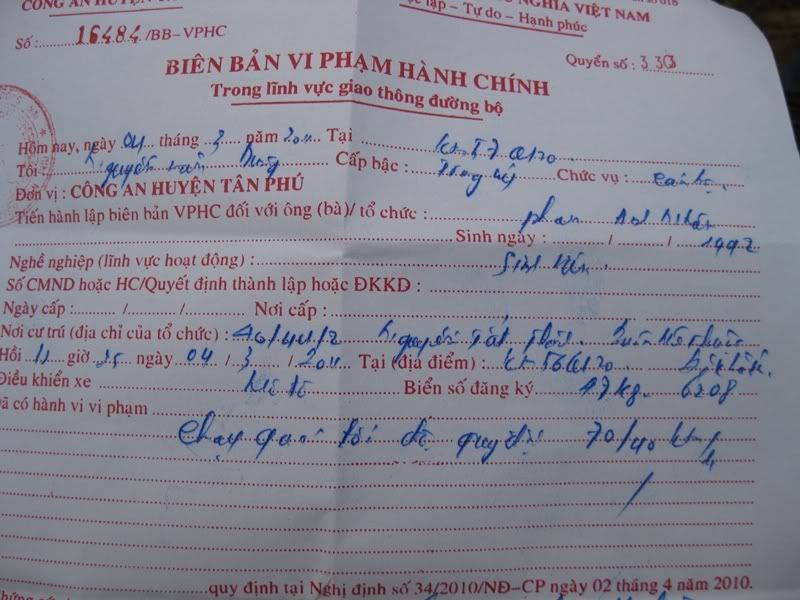 CÔNG AN HUYỆN
NGHĨA VIỆT NAM
lập – Tự do – Hạnh phúc
Số:16484/BB-VPHC
Quyển số : 330
BIÊN BẢN VI PHẠM HÀNH CHÍNH
Trong lĩnh vực giao thông đường bộ
Hôm nay, ngày 04 tháng 3 năm 2011 Tại
Tôi : Nguyễn Cấp bậc : Trung úy Chức vụ : cán bộ
Đơn vị : CÔNG AN HUYỆN TÂN PHÚ
Tiến hành lập biên bản VPHC đối với ông (bà)/ tổ chức : phan
Sinh ngày : / / 1992
Nghề nghiệp (lĩnh vực hoạt động) : Sinh viên
Số CMND hoặc HC/Quyết định thành lập hoặc ĐKKD :
Ngày cấp : / / Nơi cấp :
Nơi cư trú (địa chỉ của tổ chức) : Nguyễn Tất Thành
Hồi giờ ngày 04 / 3 / 2011 Tại (địa điểm) :
Điều khiển xe Mô tô Biển số đăng ký 6208
Đã có hành vi vi phạm
Chạy quá tốc độ quy định 70/40 km/h
quy định tại Nghị định số 34/2010/NĐ-CP ngày 02 tháng 4 năm 2010.